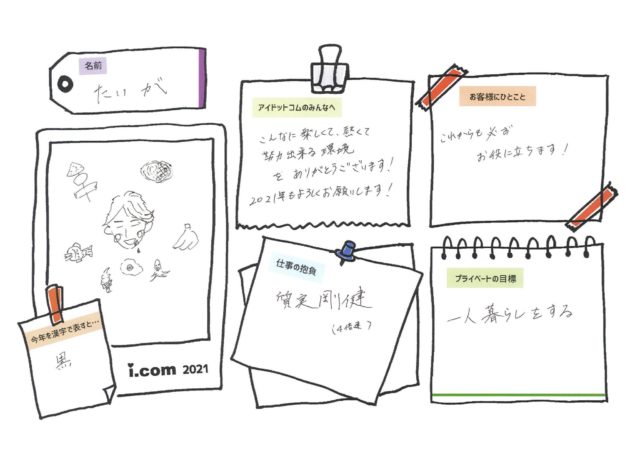 名前
たいが
アイドットコムのみんなへ
こんなに楽しくて、熱くて
努力出来る環境
を ありがとうございます!
2021年もよろしくお願いします!
お客様にひとこと
これからも必ず
お役に立ちます!
仕事の抱負
質実剛健
プライベートの目標
一人暮らしをする
今年を漢字で表すと…
黒
i.com 2021